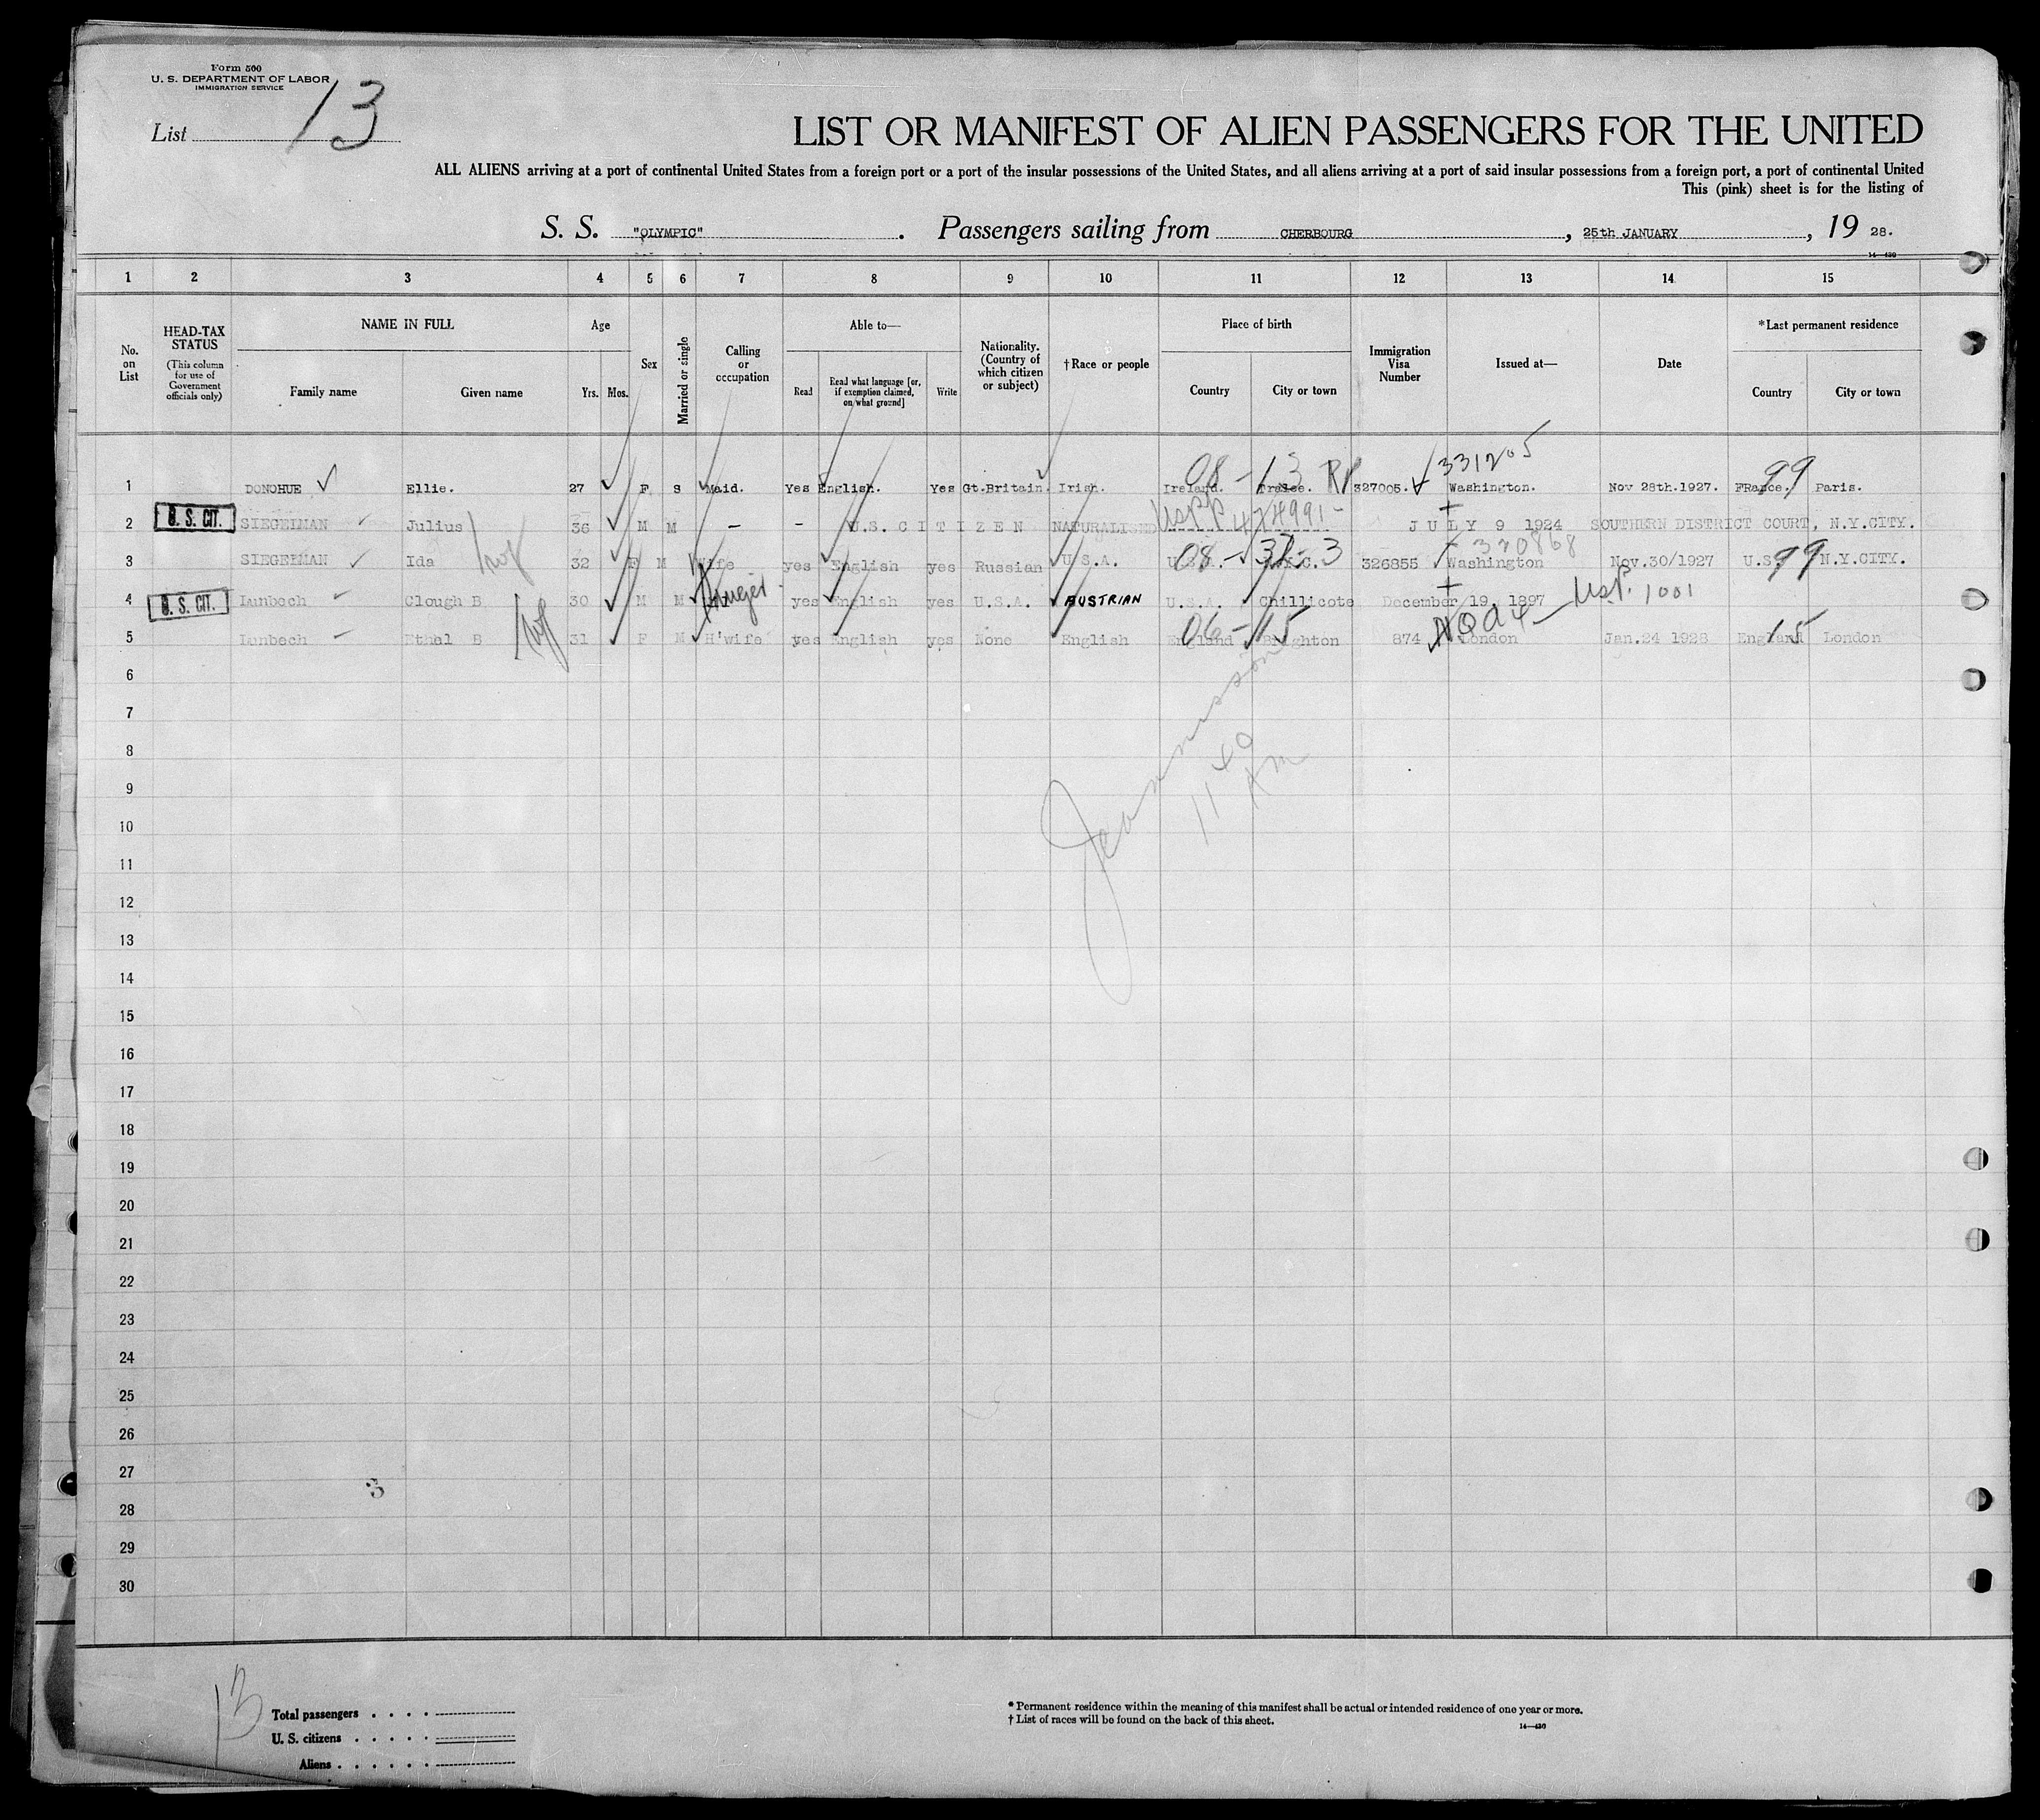 Form 500
U. S. DEPARTMENT OF LABOR
IMMIGRATION SERVICE
List 13
LIST OR MANIFEST OF ALIEN PASSENGERS FOR THE UNITED
ALL ALIENS arriving at a port of continental United States from a foreign port or a port of the insular possessions of the United States, and all aliens arriving at a port of said insular possessions from a foreign port, a port of continental United
This (pink) sheet is for the listing of
S. S. "OLYMPIC". Passengers sailing from CHERBOURG, 25th JANUARY, 19 28.
14—430
1 2 3 4 5 6 7 8 9 10 11 12 13 14 15
No. on List
HEAD-TAX STATUS (This column for use of Government officials only)
NAME IN FULL Family name Given name
Age Yrs. Mos.
Sex
Married or single
Calling or occupation
Able to— Read Read what language [or, if exemption claimed, on what ground] Write
Nationality. (Country of which citizen or subject)
†Race or people
Place of birth Country City or town
Immigration Visa Number
Issued at—
Date
*Last permanent residence Country City or town
08-13 331205 99
1 DONOHUE Ellie. 27 F S Maid. Yes English. Yes Gt.Britain. Irish. Ireland. Tralee. 327005. Washington. Nov 28th.1927. FRance. Paris.
2 U. S. CIT. SIEGELMAN Julius 36 M M - - U.S. CITIZEN NATURALISED JULY 9 1924 SOUTHERN DISTRICT COURT, N.Y.CITY.
USPP 474991-
08-37-3 320868 99
3 SIEGELMAN Ida 32 F M Wife yes English yes Russian U.S.A. 326855 Washington Nov.30/1927 N.Y.CITY.
4 U. S. CIT. Lunbech Clough B 30 M M yes English yes U.S.A. AUSTRIAN U.S.A. Chillicote December 19, 1897 USP. 1001
06-15 15
5 Lunbech Ethel B 31 F M H'wife yes English yes None English England Brighton 874 London Jan.24 1928 England London
6
7
8
9
11 40
AM
10
11
12
13
14
15
16
17
18
19
20
21
22
23
24
25
26
27
3
28
29
30
13
Total passengers . . . .
U. S. citizens . . . . .
Aliens . . . . . .
* Permanent residence within the meaning of this manifest shall be actual or intended residence of one year or more.
† List of races will be found on the back of this sheet.
14—430